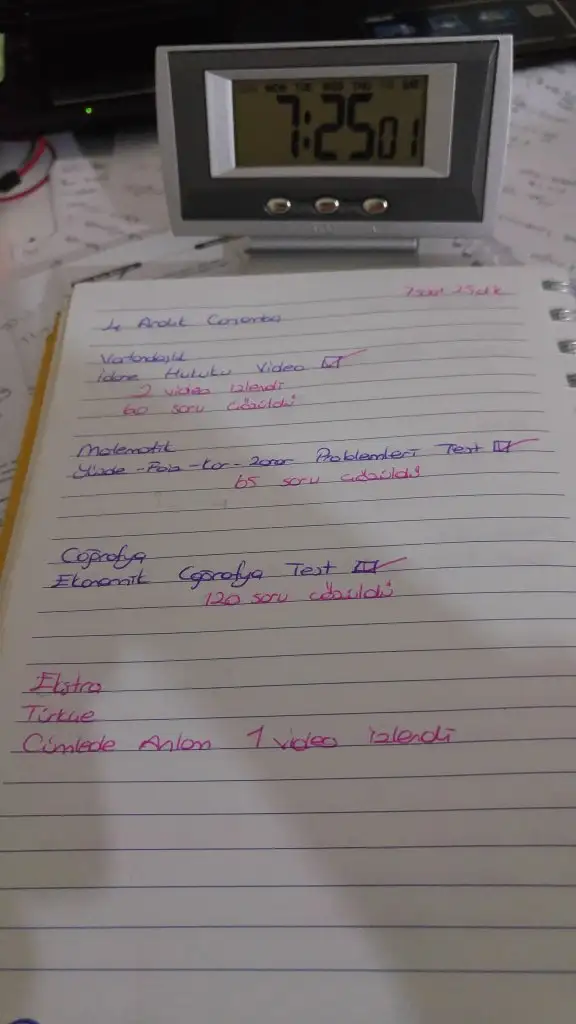 SUN MON TUE WED THU FRI SAT
7:25 01
7 saat 25 dk
4 Aralık Çarşamba
Vatandaşlık
İdare Hukuku Video
2 video izlendi
60 soru çözüldü
Matematik
Yüzde - Faiz - Kar - Zarar Problemleri Test
65 soru çözüldü
Coğrafya
Ekonomik Coğrafya Test
120 soru çözüldü
Ekstra
Türkçe
Cümlede Anlam 1 video izlendi